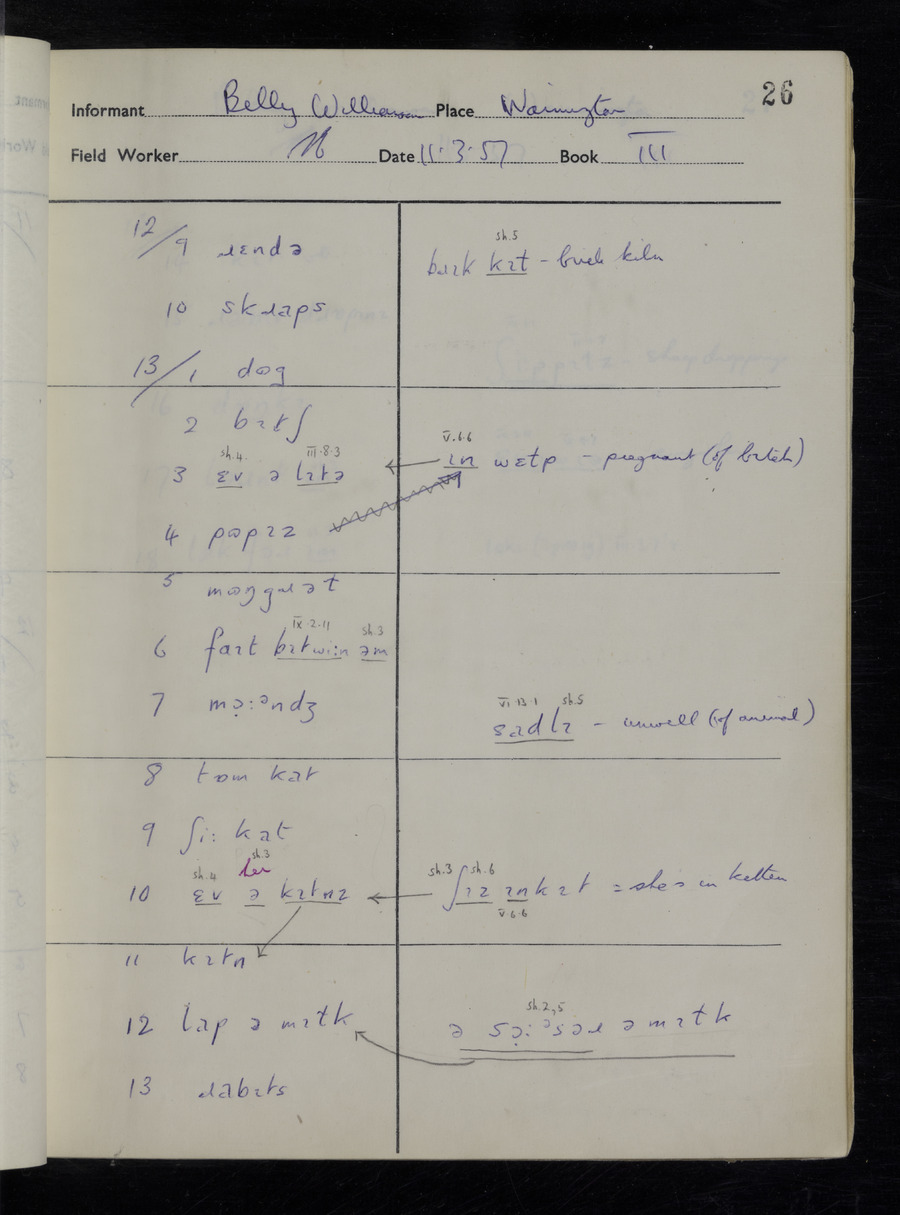 26
Informant Billy Williamson Place Warrington
Field Worker Date 11.3.57 Book III
12/9 ɹɛndə
sh.5
bɹɪk kɪɫ - brick kiln
10 skɹaps
13/1 dɒg
2 bɪtʃ
sh.4. III.8.3
3 ɛv ə lɪtə
V.6.6
ɪn wɛɫp - pregnant (of bitch)
4 pɒpɪz
5 mɒŋgɹəɫ
IX.2.11 sh.3
6 faɪt bɪtwi:n əm
7 mɔ̣:ᵊndʒ
VI.13.1 sh.5
sadlɪ - unwell (of animal)
8 tɒm kat
9 ʃi: kat
sh.4 sh.3
10 ɛv ə kɪtnz
sh.3 sh.6
ʃɪz ɪn kɪt = she's in kitten
V.6.6
11 kɪtn
12 lap ə mɪɫk
sh.2,5
ə sɔ̣:ᵊsəɹ ə mɪɫk
13 ɹabɪts